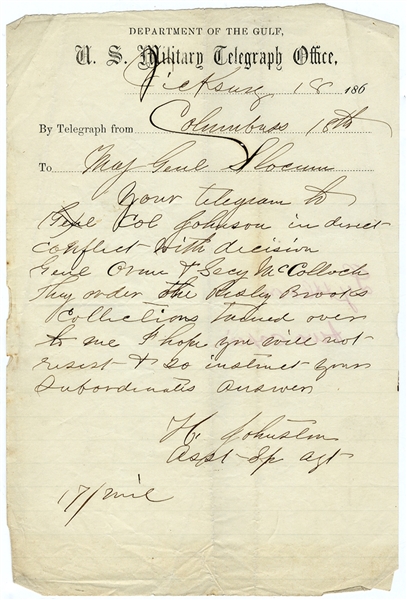 DEPARTMENT OF THE GULF,
U. S. Military Telegraph Office,
Vicksburg 18 186
By Telegraph from Columbuss 18th
To Maj Genl Slocum
Your telegram to
Genl Col Johnson in direct
conflict with decision
Genl Orme & Secy McColloch
They order the Risley Brooks
Collections turned over
to me I hope you will not
resist & so instruct your
subordinates answer
H. Johnston
Asst Sp Agt
17/mil